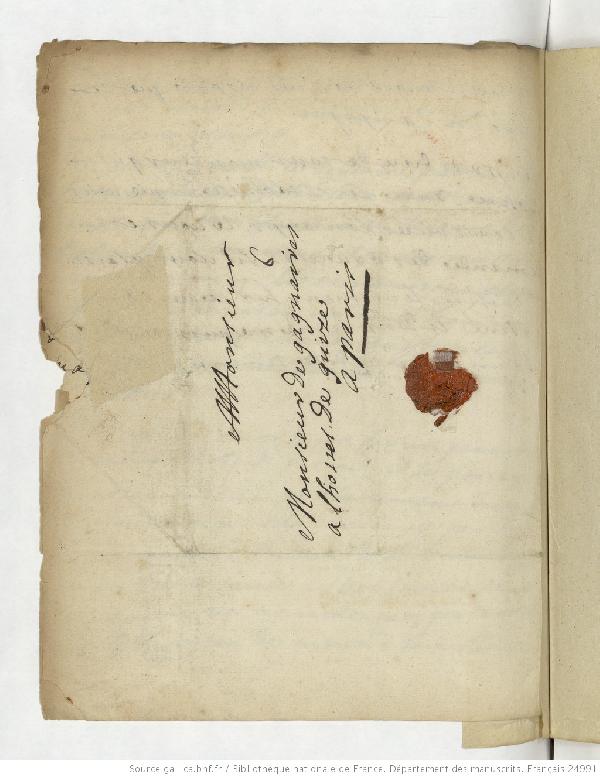 Monsieur
6
Monsieur de gagnaires
a lhostel de guize
a paris
Source gallica.bnf.fr / Bibliothèque nationale de France. Département des manuscrits. Français 24991